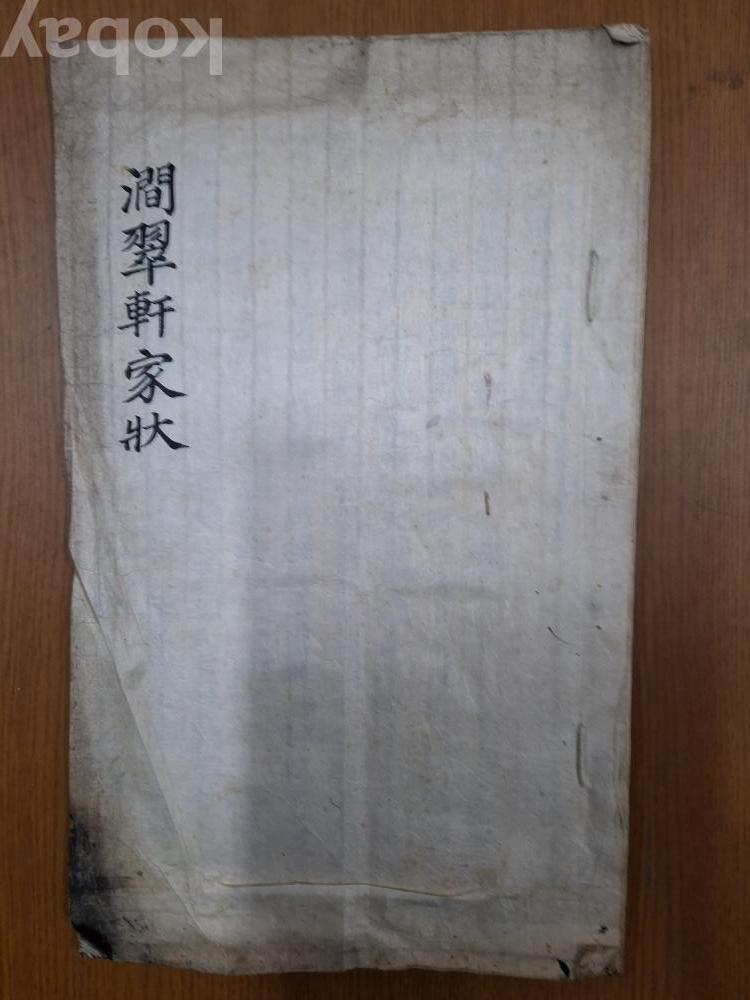 kobay
澗翠軒家狀